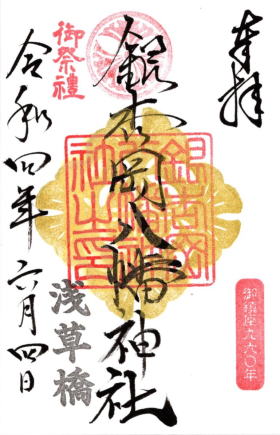 奉拝
銀杏岡八幡神社
御祭禮
令和四年六月四日
浅草橋
御鎮座九六〇年
銀杏岡八幡神社之印